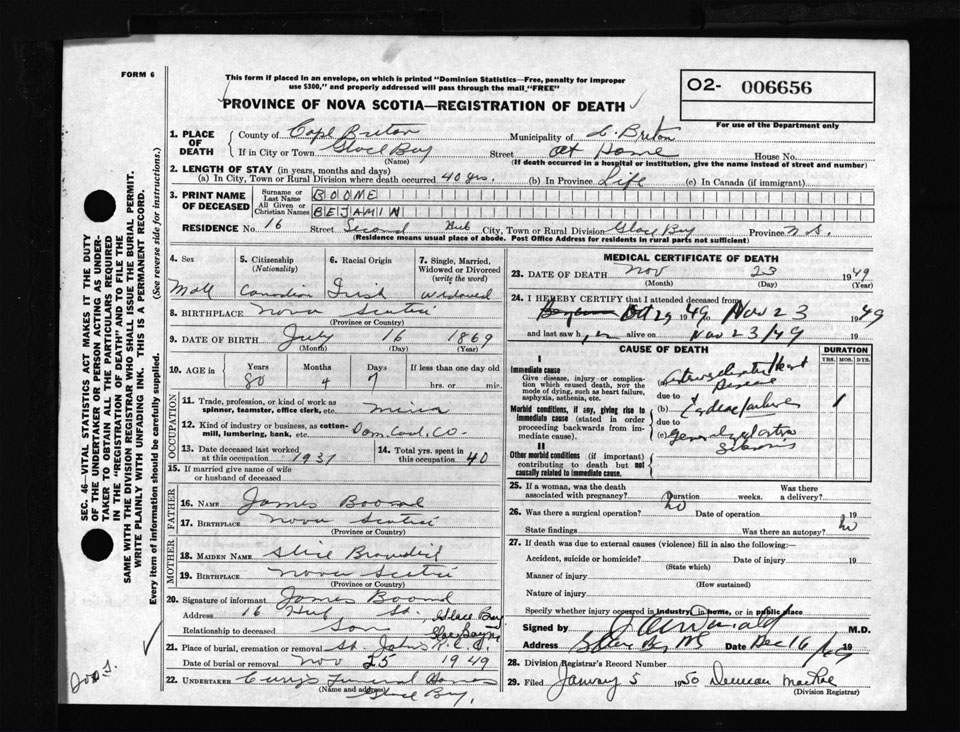 FORM 6
This form if placed in an envelope, on which is printed "Dominion Statistics—Free, penalty for improper
use $300," and properly addressed will pass through the mail "FREE"
PROVINCE OF NOVA SCOTIA—REGISTRATION OF DEATH
O2- 006656
For use of the Department only
1. PLACE OF DEATH County of Cape Breton Municipality of C. Breton
If in City or Town Glace Bay Street At Home House No.
(Name) (If death occurred in a hospital or institution, give the name instead of street and number)
2. LENGTH OF STAY (in years, months and days)
(a) In City, Town or Rural Division where death occurred 40 yrs. (b) In Province Life (c) In Canada (if immigrant)
3. PRINT NAME OF DECEASED Surname or Last Name BOOME
All Given or Christian Names BEJAMIN
RESIDENCE No. 16 Street Second Hub City, Town or Rural Division Glace Bay Province N.S.
(Residence means usual place of abode. Post Office Address for residents in rural parts not sufficient)
4. Sex 5. Citizenship (Nationality) 6. Racial Origin 7. Single, Married, Widowed or Divorced (write the word)
Male Canadian Irish Widowed
8. BIRTHPLACE Nova Scotia
(Province or Country)
9. DATE OF BIRTH July 16 1869
(Month) (Day) (Year)
10. AGE in Years Months Days If less than one day
80 4 7 hrs. or min.
OCCUPATION
11. Trade, profession, or kind of work as spinner, teamster, office clerk, etc. Miner
12. Kind of industry or business, as cotton-mill, lumbering, bank, etc. Dom. Coal. Co.
13. Date deceased last worked at this occupation 1937 14. Total yrs. spent in this occupation 40
15. If married give name of wife or husband of deceased
FATHER
16. NAME James
17. BIRTHPLACE Nova Scotia
(Province or Country)
MOTHER
18. MAIDEN NAME Alice
19. BIRTHPLACE Nova Scotia
(Province or Country)
20. Signature of informant James
Address 16 Hub St., Glace Bay
Relationship to deceased Son
21. Place of burial, cremation or removal St. John's
Date of burial or removal Nov 25 1949
22. UNDERTAKER Curry's Funeral Home
(Name and address) Glace Bay.
MEDICAL CERTIFICATE OF DEATH
23. DATE OF DEATH Nov 23 1949
(Month) (Day) (Year)
24. I HEREBY CERTIFY that I attended deceased from
Oct 29 1949 Nov 23 1949
and last saw h im alive on Nov 23/49 19
CAUSE OF DEATH DURATION
YRS. MOS. DYS.
I
Immediate cause
Give disease, injury or complication which caused death, NOT the mode of dying, such as heart failure, asphyxia, asthenia, etc.
(a) Arteriosclerotic Heart Disease
due to
Morbid conditions, if any, giving rise to immediate cause (stated in order proceeding backwards from immediate cause).
(b) Cardiac failure 1
due to
(c) General arterio sclerosis
II
Other morbid conditions (if important) contributing to death but not causally related to immediate cause.
25. If a woman, was the death associated with pregnancy? Duration weeks. Was there a delivery?
26. Was there a surgical operation? no Date of operation 19
State findings Was there an autopsy? no
27. If death was due to external causes (violence) fill in also the following:—
Accident, suicide or homicide? Date of injury 19
(State which)
Manner of injury
(How sustained)
Nature of injury
Specify whether injury occurred in industry, in home, or in public place
Signed by M.D.
Address Glace Bay NS Date Dec 16 /49 19
28. Division Registrar's Record Number
29. Filed January 5 1950 Duncan MacRae
(Division Registrar)
SEC. 46—VITAL STATISTICS ACT MAKES IT THE DUTY
OF THE UNDERTAKER OR PERSON ACTING AS UNDERTAKER
TO OBTAIN ALL THE PARTICULARS REQUIRED
IN THE "REGISTRATION OF DEATH" AND TO FILE THE
SAME WITH THE DIVISION REGISTRAR WHO SHALL ISSUE THE BURIAL PERMIT.
WRITE PLAINLY WITH UNFADING INK. THIS IS A PERMANENT RECORD.
Every item of information should be carefully supplied. (See reverse side for instructions.)